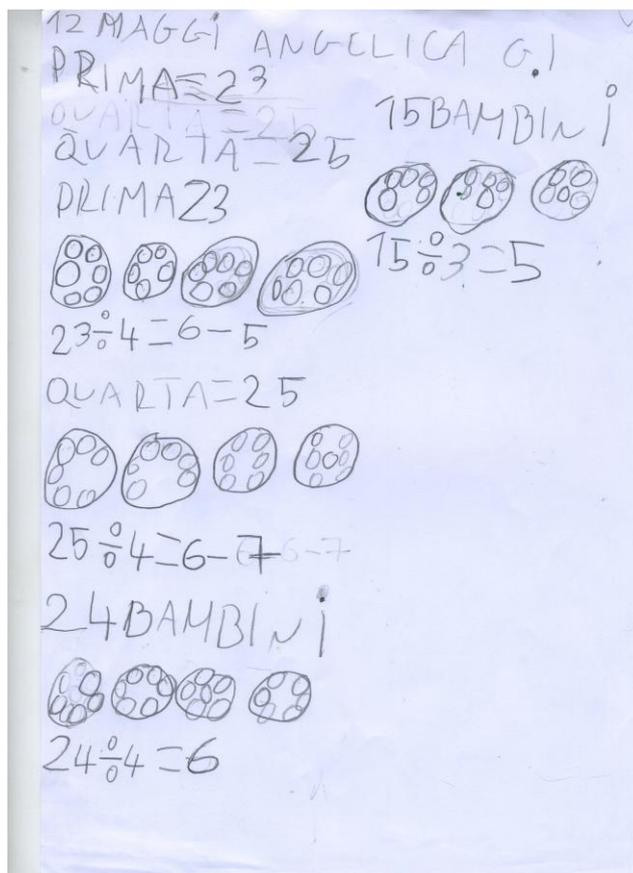 12 MAGGi ANGELICA G.I
PRIMA=23
QUARTA=25
QUARTA=25
PRIMA23
23÷4=6-5
QUARTA=25
25÷4=6-7 6-7
24BAMBINi
24÷4=6
15BAMBINi
15÷3=5